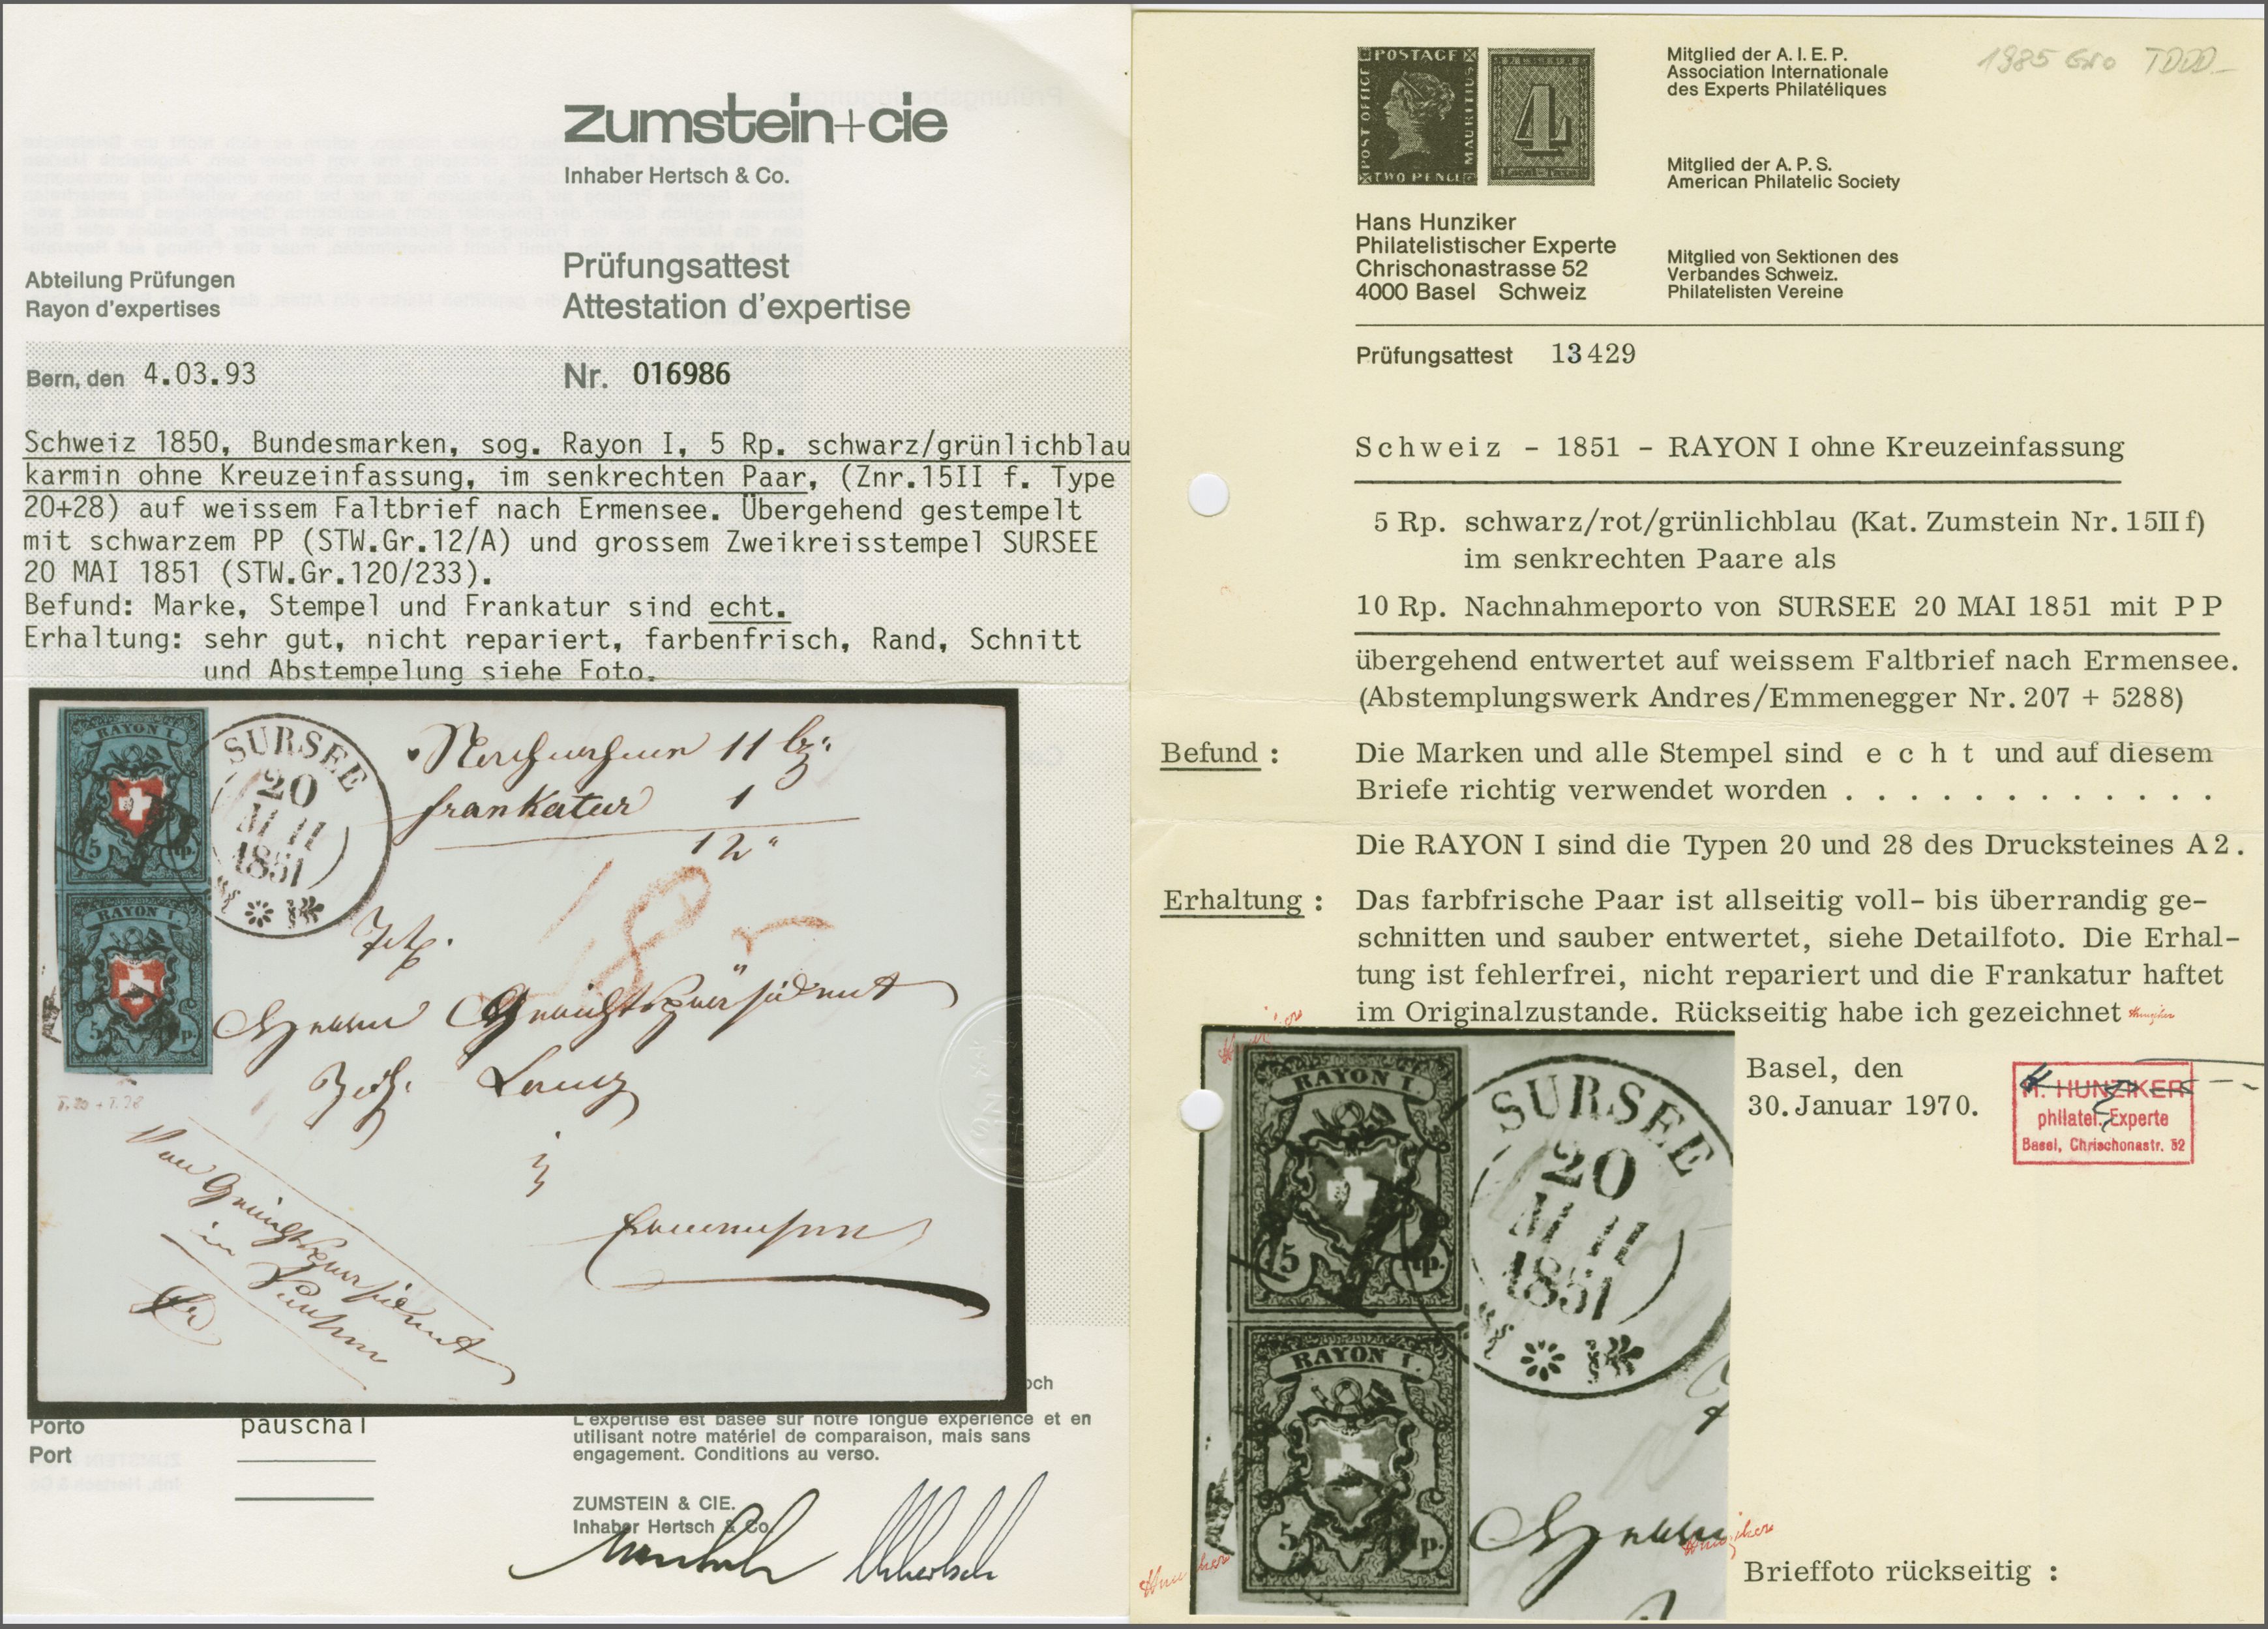 zumstein+cie
Inhaber Hertsch & Co.
Abteilung Prüfungen
Rayon d'expertises
Prüfungsattest
Attestation d'expertise
Bern, den 4.03.93
Nr. 016986
Schweiz 1850, Bundesmarken, sog. Rayon I, 5 Rp. schwarz/grünlichblau
karmin ohne Kreuzeinfassung, im senkrechten Paar, (Znr.15II f. Type
20+28) auf weissem Faltbrief nach Ermensee. Übergehend gestempelt
mit schwarzem PP (STW.Gr.12/A) und grossem Zweikreisstempel SURSEE
20 MAI 1851 (STW.Gr.120/233).
Befund: Marke, Stempel und Frankatur sind echt.
Erhaltung: sehr gut, nicht repariert, farbenfrisch, Rand, Schnitt
und Abstempelung siehe Foto.
RAYON I.
5 Rp.
RAYON I.
5 Rp.
SURSEE
20
1851
11
frankatur 1
12
18
T.20 + T.28
Porto
Port
pauschal
och
L'expertise est basée sur notre longue expérience et en
utilisant notre matériel de comparaison, mais sans
engagement. Conditions au verso.
ZUMSTEIN & CIE.
Inhaber Hertsch & Co.
POSTAGE
POST OFFICE
MAURITIUS
TWO PENCE
4
Local-Taxe
Mitglied der A.I.E.P.
Association Internationale
des Experts Philatéliques
1985
Mitglied der A.P.S.
American Philatelic Society
Hans Hunziker
Philatelistischer Experte
Chrischonastrasse 52
4000 Basel Schweiz
Mitglied von Sektionen des
Verbandes Schweiz.
Philatelisten Vereine
Prüfungsattest 13429
Schweiz - 1851 - RAYON I ohne Kreuzeinfassung
5 Rp. schwarz/rot/grünlichblau (Kat. Zumstein Nr. 15II f)
im senkrechten Paare als
10 Rp. Nachnahmeporto von SURSEE 20 MAI 1851 mit P P
übergehend entwertet auf weissem Faltbrief nach Ermensee.
(Abstemplungswerk Andres/Emmenegger Nr. 207 + 5288)
Befund : Die Marken und alle Stempel sind e c h t und auf diesem
Briefe richtig verwendet worden . . . . . . . . . . . .
Die RAYON I sind die Typen 20 und 28 des Drucksteines A 2 .
Erhaltung : Das farbfrische Paar ist allseitig voll- bis überrandig ge-
schnitten und sauber entwertet, siehe Detailfoto. Die Erhal-
tung ist fehlerfrei, nicht repariert und die Frankatur haftet
im Originalzustande. Rückseitig habe ich gezeichnet Hunziker
RAYON I.
5 Rp.
RAYON I.
5 Rp.
SURSEE
20
1851
Basel, den
30. Januar 1970.
H. HUNZIKER
philatel. Experte
Basel, Chrischonastr. 52
Hunziker
Hunziker
Hunziker
Brieffoto rückseitig :